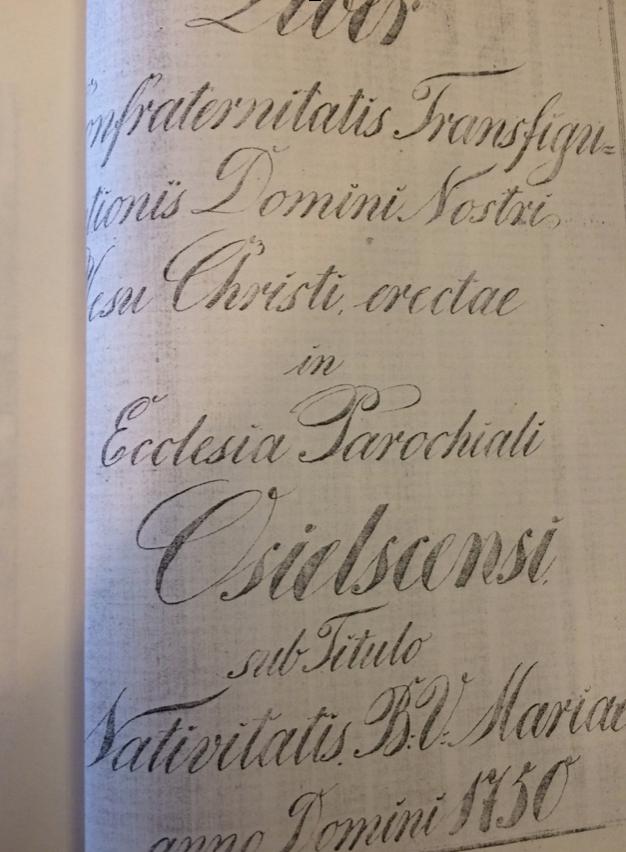 Liber
onfraternitatis Transfigu=
tionis Domini Nostri
Iesu Christi, erectae
in
Ecclesia Parochiali
Osielscensi
sub Titulo
Nativitatis B.V. Mariae
anno Domini 1750